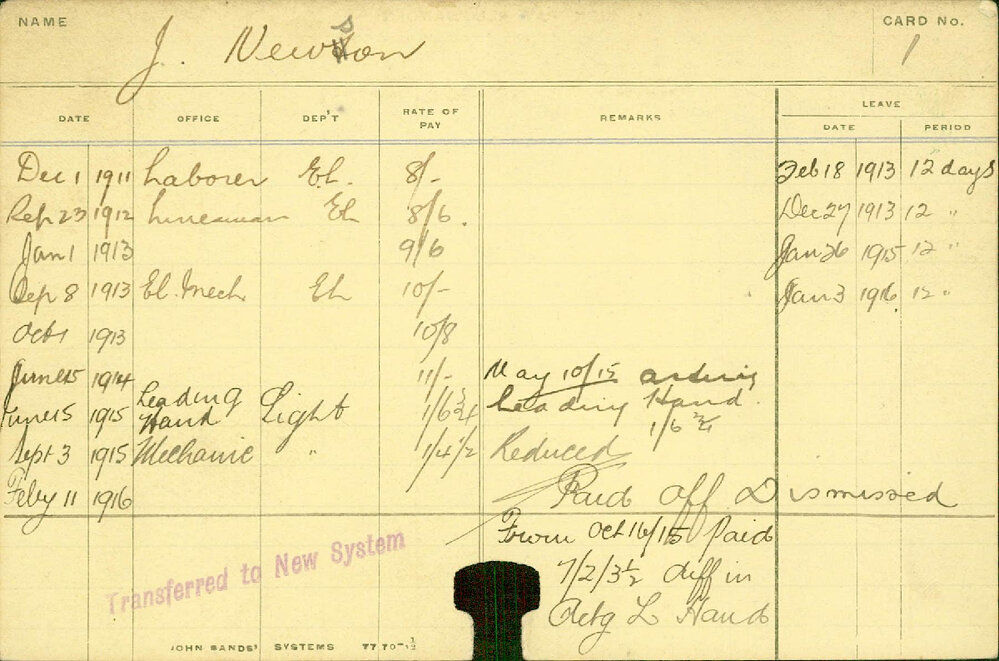 NAME J. Newson CARD No. 1
LEAVE
DATE OFFICE DEP'T RATE OF PAY REMARKS DATE PERIOD
Dec 1 1911 Laborer El. 8/- Feb 18 1913 12 days
Sep 23 1912 Lineman El 8/6. Dec 27 1913 12 "
Jan 1 1913 9/6 Jan 26 1915 12 "
Sep 8 1913 El. Mech El 10/- Jan 3 1916 12 "
Oct 1 1913 10/8
June 15 1914 11/- May 10/15 acting
June 15 1915 Leading Hand Light 1/6 3/4 Leading Hand.
1/6 3/4
Sept 3 1915 Mechanic " 1/4 1/2 Reduced
Feby 11 1916 Paid off Dismissed
From Oct 16/15 Paid
7/2/3½ diff in
Actg L Hand
Transferred to New System
JOHN SANDS' SYSTEMS